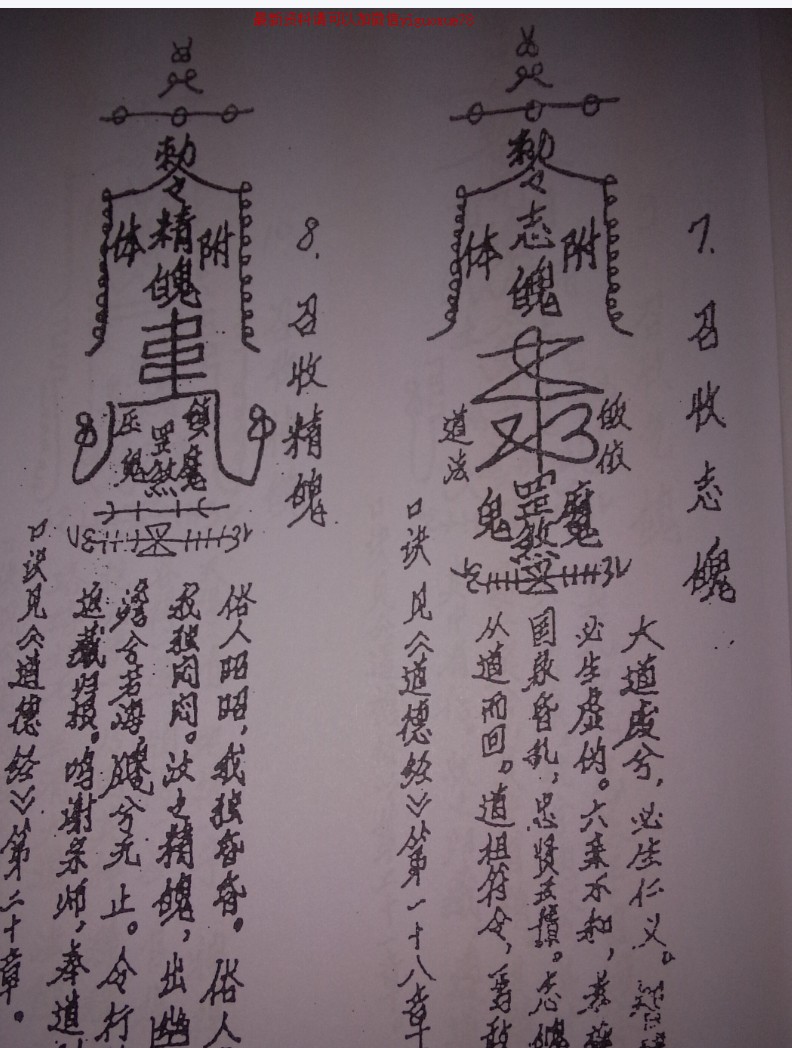 7. 召收志魄
敕令
志魄
附体
道法
皈依
罡煞
鬼
魔
大道废兮，必生仁义。智
必生虚伪。六亲不和，孝
国家昏乱，忠贤
志魄
从道而回。道祖符令，
口诀见《道德经》第一十八章
8. 召收精魄
敕令
精魄
附体
镇魔
压鬼
罡煞
俗人昭昭，我独昏昏。俗人
我独闷闷。汝之精魄，出幽
澹兮若海，飂兮无止。令行
返藏归根。鸣谢宗师，奉道
口诀见《道德经》第二十章。